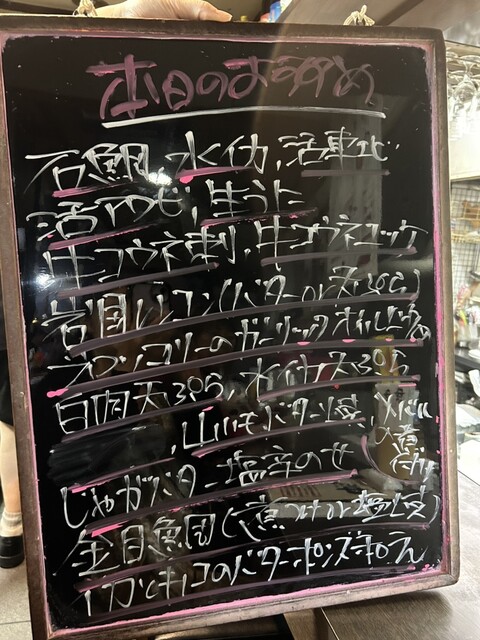 本日のおすすめ
石鯛、水イカ、活車エビ
活アワビ、生うに
生コウネ刺、生コウネユッケ
岩国レンコン(バターor天ぷら)
ブロッコリーのガーリックオイル
白肉天ぷら、水イカ天ぷら
、山いもバター焼、メバルの煮付け
じゃがバター塩辛のせ
金目鯛(煮つけor塩焼)
イカとキノコのバターポンズホイル